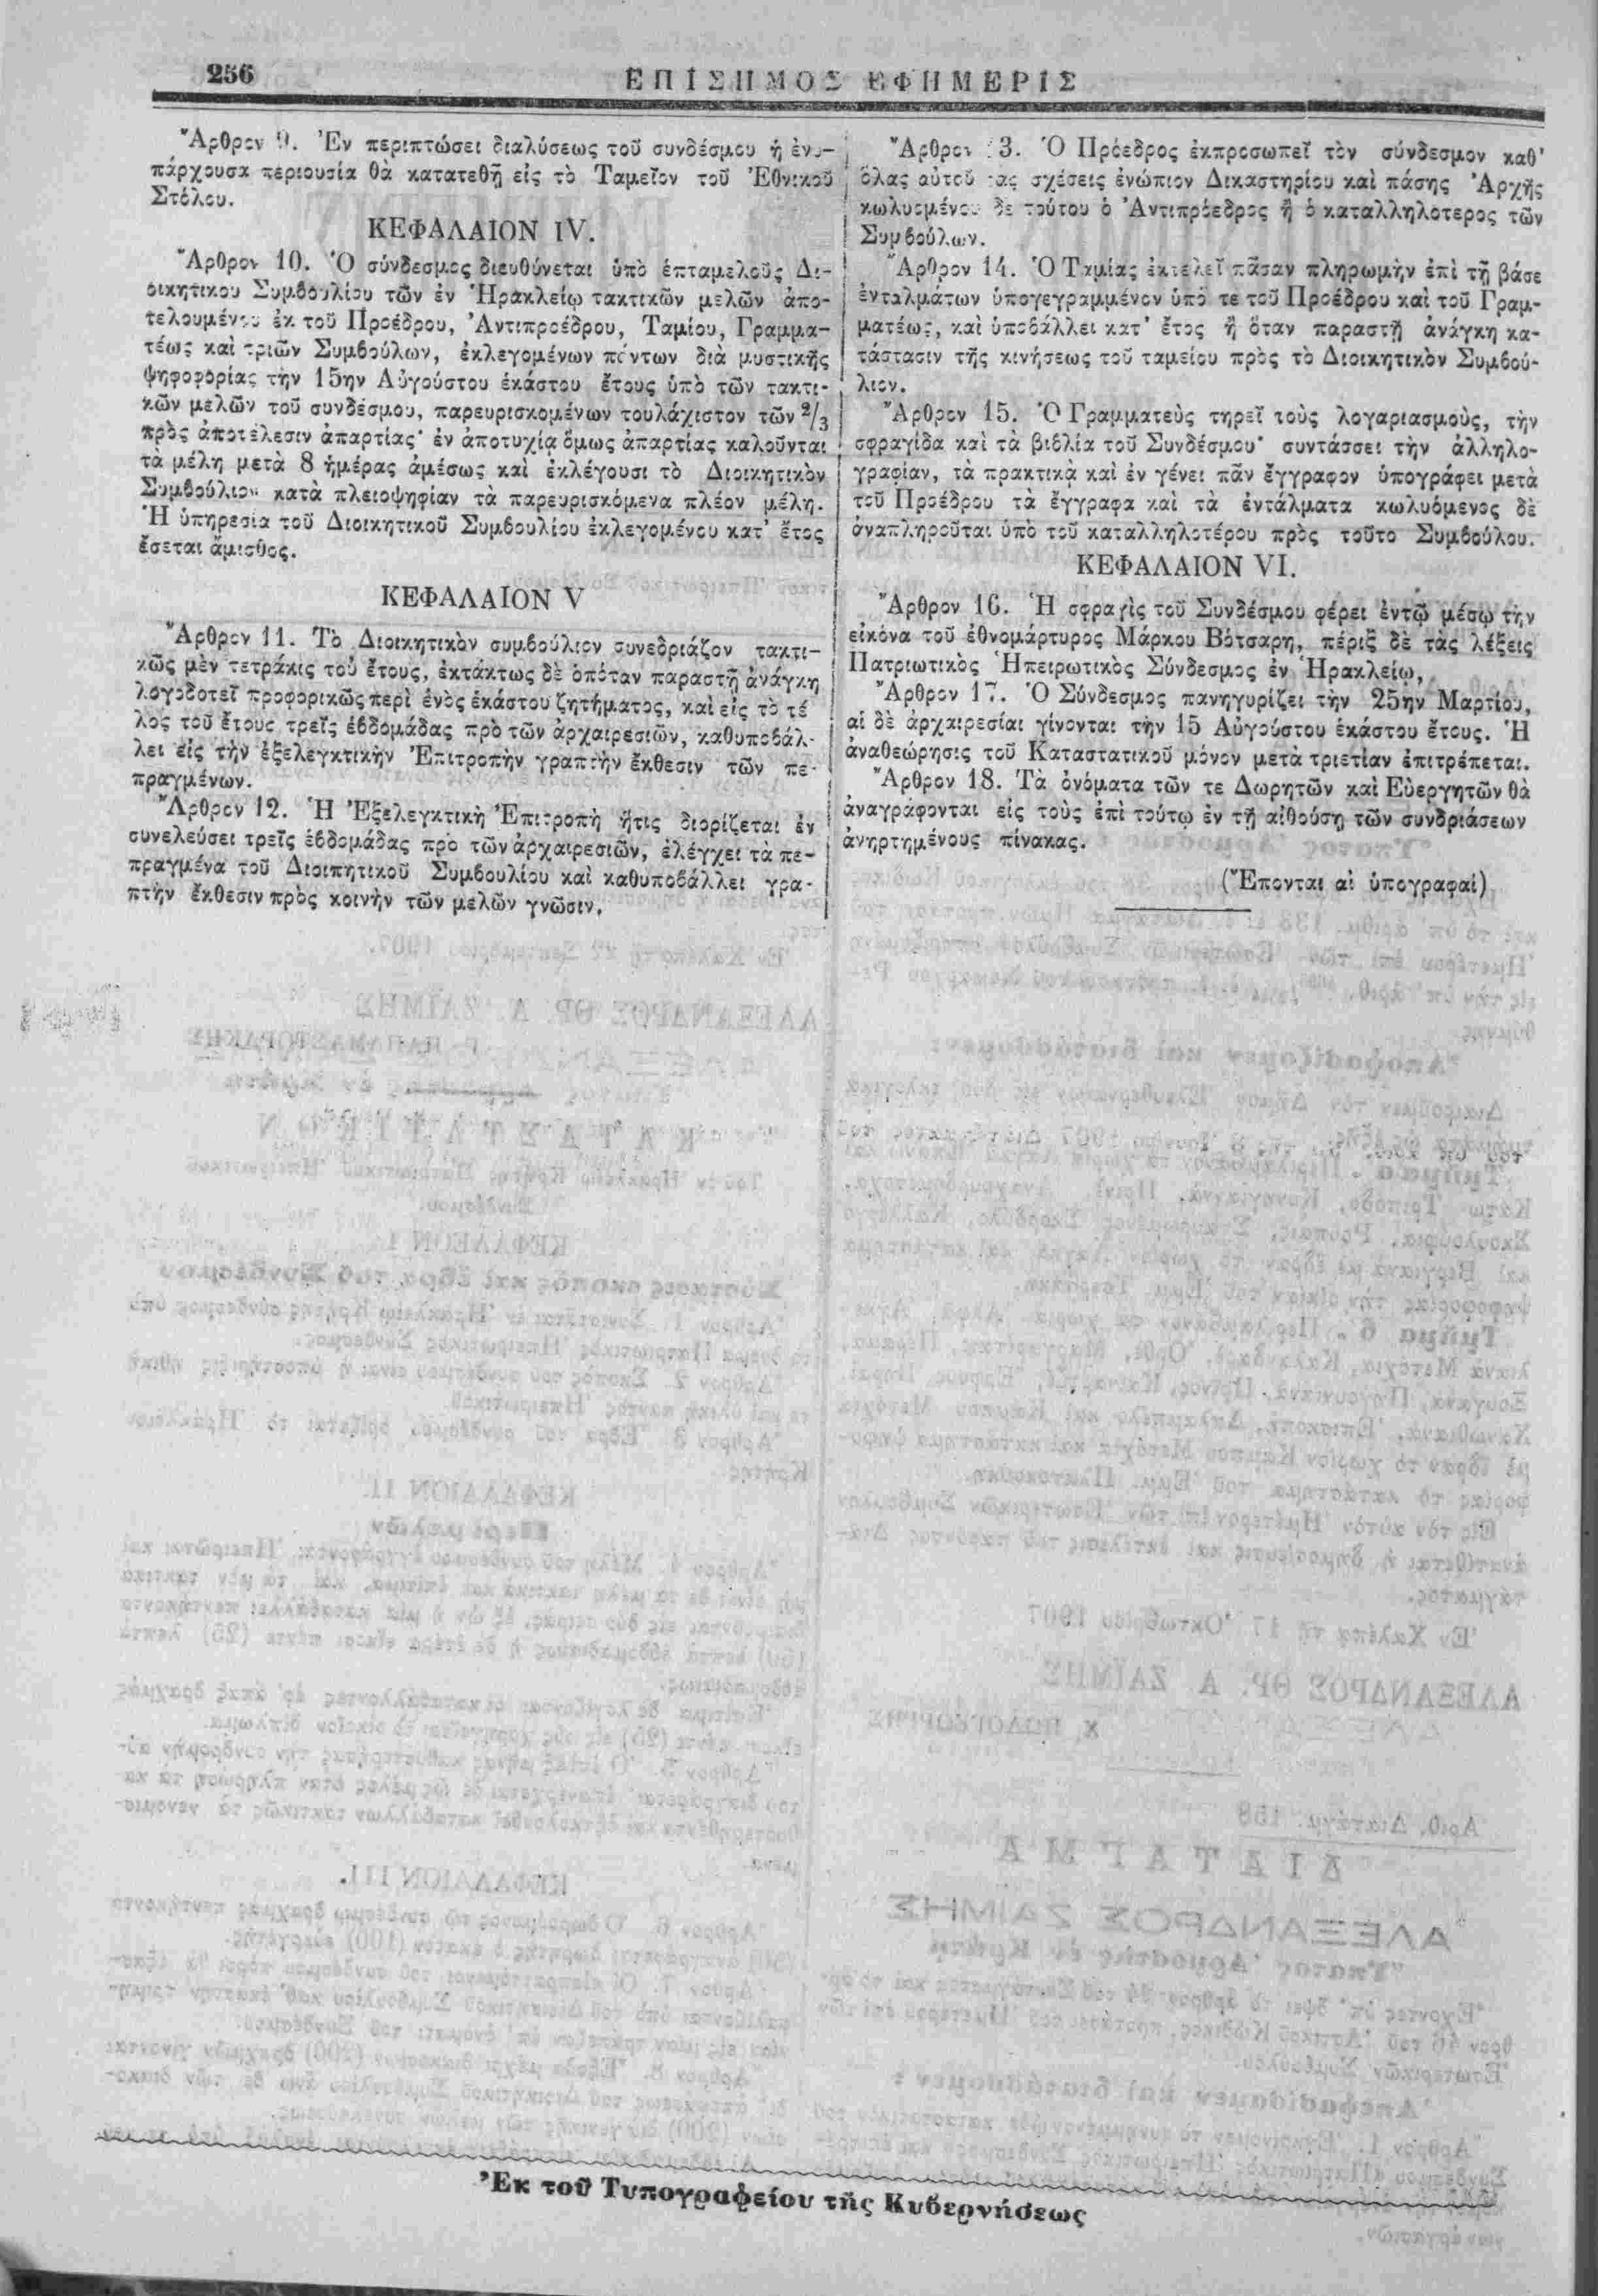 256
ΕΠΙΣΗΜΟΣ ΕΦΗΜΕΡΙΣ
Ἄρθρον 9. Ἐν περιπτώσει διαλύσεως τοῦ συνδέσμου ἡ ἐνυ-
πάρχουσα περιουσία θὰ κατατεθῇ εἰς τὸ Ταμεῖον τοῦ Ἐθνικοῦ
Στόλου.
ΚΕΦΑΛΑΙΟΝ IV.
Ἄρθρον 10. Ὁ σύνδεσμος διευθύνεται ὑπὸ ἑπταμελοῦς Δι-
οικητικου Συμβουλίου τῶν ἐν Ἡρακλείῳ τακτικῶν μελῶν ἀπο-
τελουμένου ἐκ τοῦ Προέδρου, Ἀντιπροέδρου, Ταμίου, Γραμμα-
τέως καὶ τριῶν Συμβούλων, ἐκλεγομένων πάντων διὰ μυστικῆς
ψηφοφορίας τὴν 15ην Αὐγούστου ἑκάστου ἔτους ὑπὸ τῶν τακτι-
κῶν μελῶν τοῦ συνδέσμου, παρευρισκομένων τουλάχιστον τῶν 2/3
πρὸς ἀποτέλεσιν ἀπαρτίας· ἐν ἀποτυχίᾳ ὅμως ἀπαρτίας καλοῦνται
τὰ μέλη μετὰ 8 ἡμέρας ἀμέσως καὶ ἐκλέγουσι τὸ Διοικητικὸν
Συμβούλιον κατὰ πλειοψηφίαν τὰ παρευρισκόμενα πλέον μέλη.
Ἡ ὑπηρεσία τοῦ Διοικητικοῦ Συμβουλίου ἐκλεγομένου κατ' ἔτος
ἔσεται ἄμισθος.
ΚΕΦΑΛΑΙΟΝ V
Ἄρθρον 11. Τὸ Διοικητικὸν συμβούλιον συνεδριάζον τακτι-
κῶς μὲν τετράκις τοῦ ἔτους, ἐκτάκτως δὲ ὁπόταν παραστῇ ἀνάγκη
λογοδοτεῖ προφορικῶς περὶ ἑνὸς ἑκάστου ζητήματος, καὶ εἰς τὸ τέ
λος τοῦ ἔτους τρεῖς ἑβδομάδας πρὸ τῶν ἀρχαιρεσιῶν, καθυποβάλ-
λει εἰς τὴν ἐξελεγκτικὴν Ἐπιτροπὴν γραπτὴν ἔκθεσιν τῶν πε-
πραγμένων.
Ἄρθρον 12. Ἡ Ἐξελεγκτικὴ Ἐπιτροπὴ ἥτις διορίζεται ἐν
συνελεύσει τρεῖς ἑβδομάδας πρὸ τῶν ἀρχαιρεσιῶν, ἐλέγχει τὰ πε-
πραγμένα τοῦ Διοιπητικοῦ Συμβουλίου καὶ καθυποβάλλει γρα-
πτὴν ἔκθεσιν πρὸς κοινὴν τῶν μελῶν γνῶσιν.
Ἄρθρον 13. Ὁ Πρόεδρος ἐκπροσωπεῖ τὸν σύνδεσμον καθ'
ὅλας αὐτοῦ τας σχέσεις ἐνώπιον Δικαστηρίου καὶ πάσης Ἀρχῆς
κωλυομένου δὲ τούτου ὁ Ἀντιπρόεδρος ἢ ὁ καταλληλότερος τῶν
Συμβούλων.
Ἄρθρον 14. Ὁ Ταμίας ἐκτελεῖ πᾶσαν πληρωμὴν ἐπὶ τῇ βάσε
ἐνταλμάτων ὑπογεγραμμένον ὑπό τε τοῦ Προέδρου καὶ τοῦ Γραμ-
ματέως, καὶ ὑποβάλλει κατ' ἔτος ἢ ὅταν παραστῇ ἀνάγκη κα-
τάστασιν τῆς κινήσεως τοῦ ταμείου πρὸς τὸ Διοικητικὸν Συμβού-
λιον.
Ἄρθρον 15. Ὁ Γραμματεὺς τηρεῖ τοὺς λογαριασμούς, τὴν
σφραγίδα καὶ τὰ βιβλία τοῦ Συνδέσμου· συντάσσει τὴν ἀλληλο-
γραφίαν, τὰ πρακτικὰ καὶ ἐν γένει πᾶν ἔγγραφον ὑπογράφει μετὰ
τοῦ Προέδρου τὰ ἔγγραφα καὶ τὰ ἐντάλματα κωλυόμενος δὲ
ἀναπληροῦται ὑπὸ τοῦ καταλληλοτέρου πρὸς τοῦτο Συμβούλου.
ΚΕΦΑΛΑΙΟΝ VI.
Ἄρθρον 16. Ἡ σφραγὶς τοῦ Συνδέσμου φέρει ἐντῷ μέσῳ τὴν
εἰκόνα τοῦ ἐθνομάρτυρος Μάρκου Βότσαρη, πέριξ δὲ τὰς λέξεις
Πατριωτικὸς Ἠπειρωτικὸς Σύνδεσμος ἐν Ἡρακλείῳ,
Ἄρθρον 17. Ὁ Σύνδεσμος πανηγυρίζει τὴν 25ην Μαρτίου,
αἱ δὲ ἀρχαιρεσίαι γίνονται τὴν 15 Αὐγούστου ἑκάστου ἔτους. Ἡ
ἀναθεώρησις τοῦ Καταστατικοῦ μόνον μετὰ τριετίαν ἐπιτρέπεται.
Ἄρθρον 18. Τὰ ὀνόματα τῶν τε Δωρητῶν καὶ Εὐεργητῶν θὰ
ἀναγράφονται εἰς τοὺς ἐπὶ τούτῳ ἐν τῇ αἰθούσῃ τῶν συνδριάσεων
ἀνηρτημένους πίνακας.
(Ἕπονται αἱ ὑπογραφαί)
Ἐκ τοῦ Τυπογραφείου τῆς Κυβερνήσεως